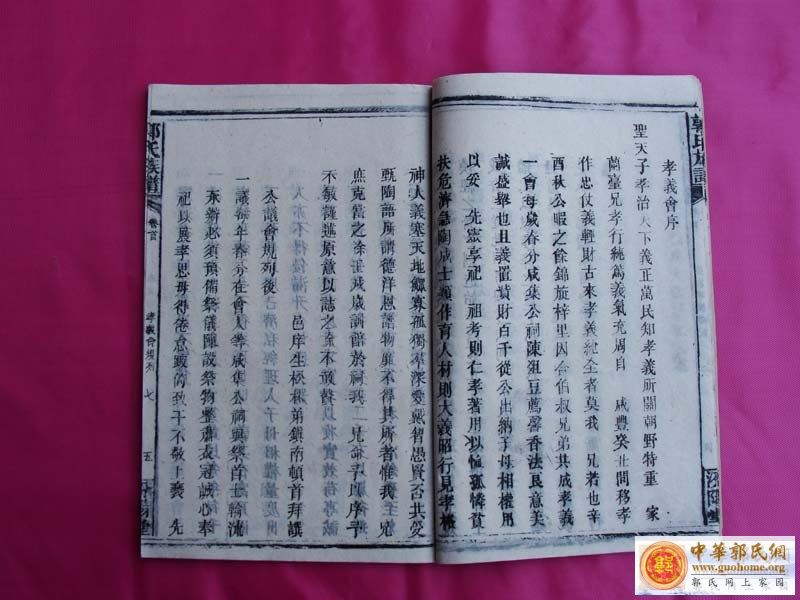 郭氏族譜
孝義會序
聖天子孝治天下義正萬民知孝義所關朝野特重 家
蘭臺兄孝行純篤義氣充周自 咸豐癸丑間移孝
作忠仗義輕財古來孝義純全者莫我 兄若也辛
酉秋公暇之餘錦旋梓里因合伯叔兄弟共成孝義
一會每歲春分咸集公祠陳俎豆薦馨香法良意美
誠盛舉也且義置貲財百千從公出納子母相權用
以妥 先靈享祀 祖考則仁孝著用以恤孤憐貧
扶危濟急陶成士類作育人材則大義昭行見孝格
神人義塞天地鰥寡孤獨羣深愛戴智愚賢否共受
甄陶語所謂德洋恩溥物靡不得其所者惟我 兄
庶克當之徐
不敏謹述原意以誌之並不須
邑庠生 弟鎮南頓首拜撰
公議會規列後
一議每年春分在會人等咸集公祠與祭首士輪流
承辦必須預備祭儀陳設祭物整肅衣冠誠心奉
祀以展孝思毋得倦怠致干不敬上褻 先
郭氏族譜
卷首
孝義會規列
七
五
汾陽堂
中華郭氏網
www.guohome.org
郭氏网上家园